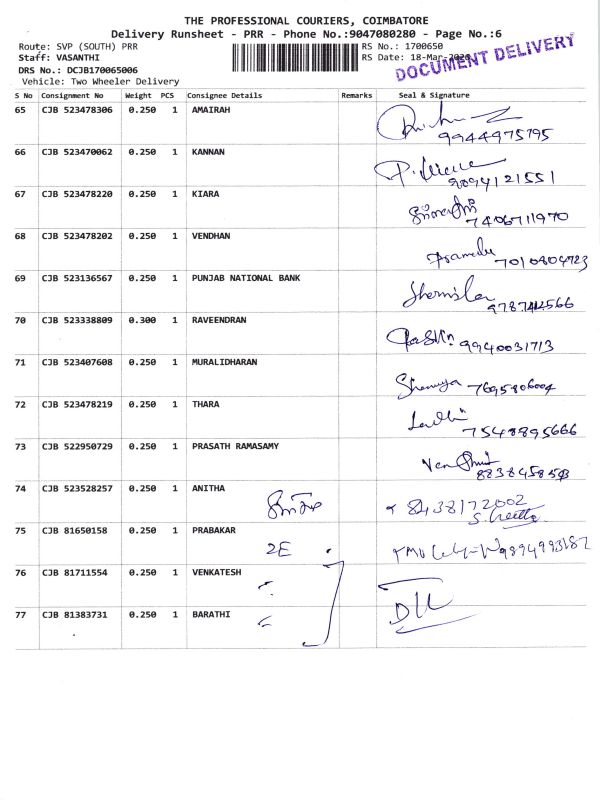 THE PROFESSIONAL COURIERS, COIMBATORE
Delivery Runsheet - PRR - Phone No.:9047080280 - Page No.:6
Route: SVP (SOUTH) PRR RS No.: 1700650
Staff: VASANTHI RS Date: 18-Mar-
DOCUMENT DELIVERY
DRS No.: DCJB170065006
Vehicle: Two Wheeler Delivery
S No Consignment No Weight PCS Consignee Details Remarks Seal & Signature
65 CJB 523478306 0.250 1 AMAIRAH
9944975795
66 CJB 523470062 0.250 1 KANNAN
9094121551
67 CJB 523478220 0.250 1 KIARA
7406711970
68 CJB 523478202 0.250 1 VENDHAN
7010404723
69 CJB 523136567 0.250 1 PUNJAB NATIONAL BANK
70 CJB 523338809 0.300 1 RAVEENDRAN
9940031713
71 CJB 523407608 0.250 1 MURALIDHARAN
7695806004
72 CJB 523478219 0.250 1 THARA
7548895666
73 CJB 522950729 0.250 1 PRASATH RAMASAMY
74 CJB 523528257 0.250 1 ANITHA 8438172002
75 CJB 81650158 0.250 1 PRABAKAR
2E 9894993187
76 CJB 81711554 0.250 1 VENKATESH
77 CJB 81383731 0.250 1 BARATHI